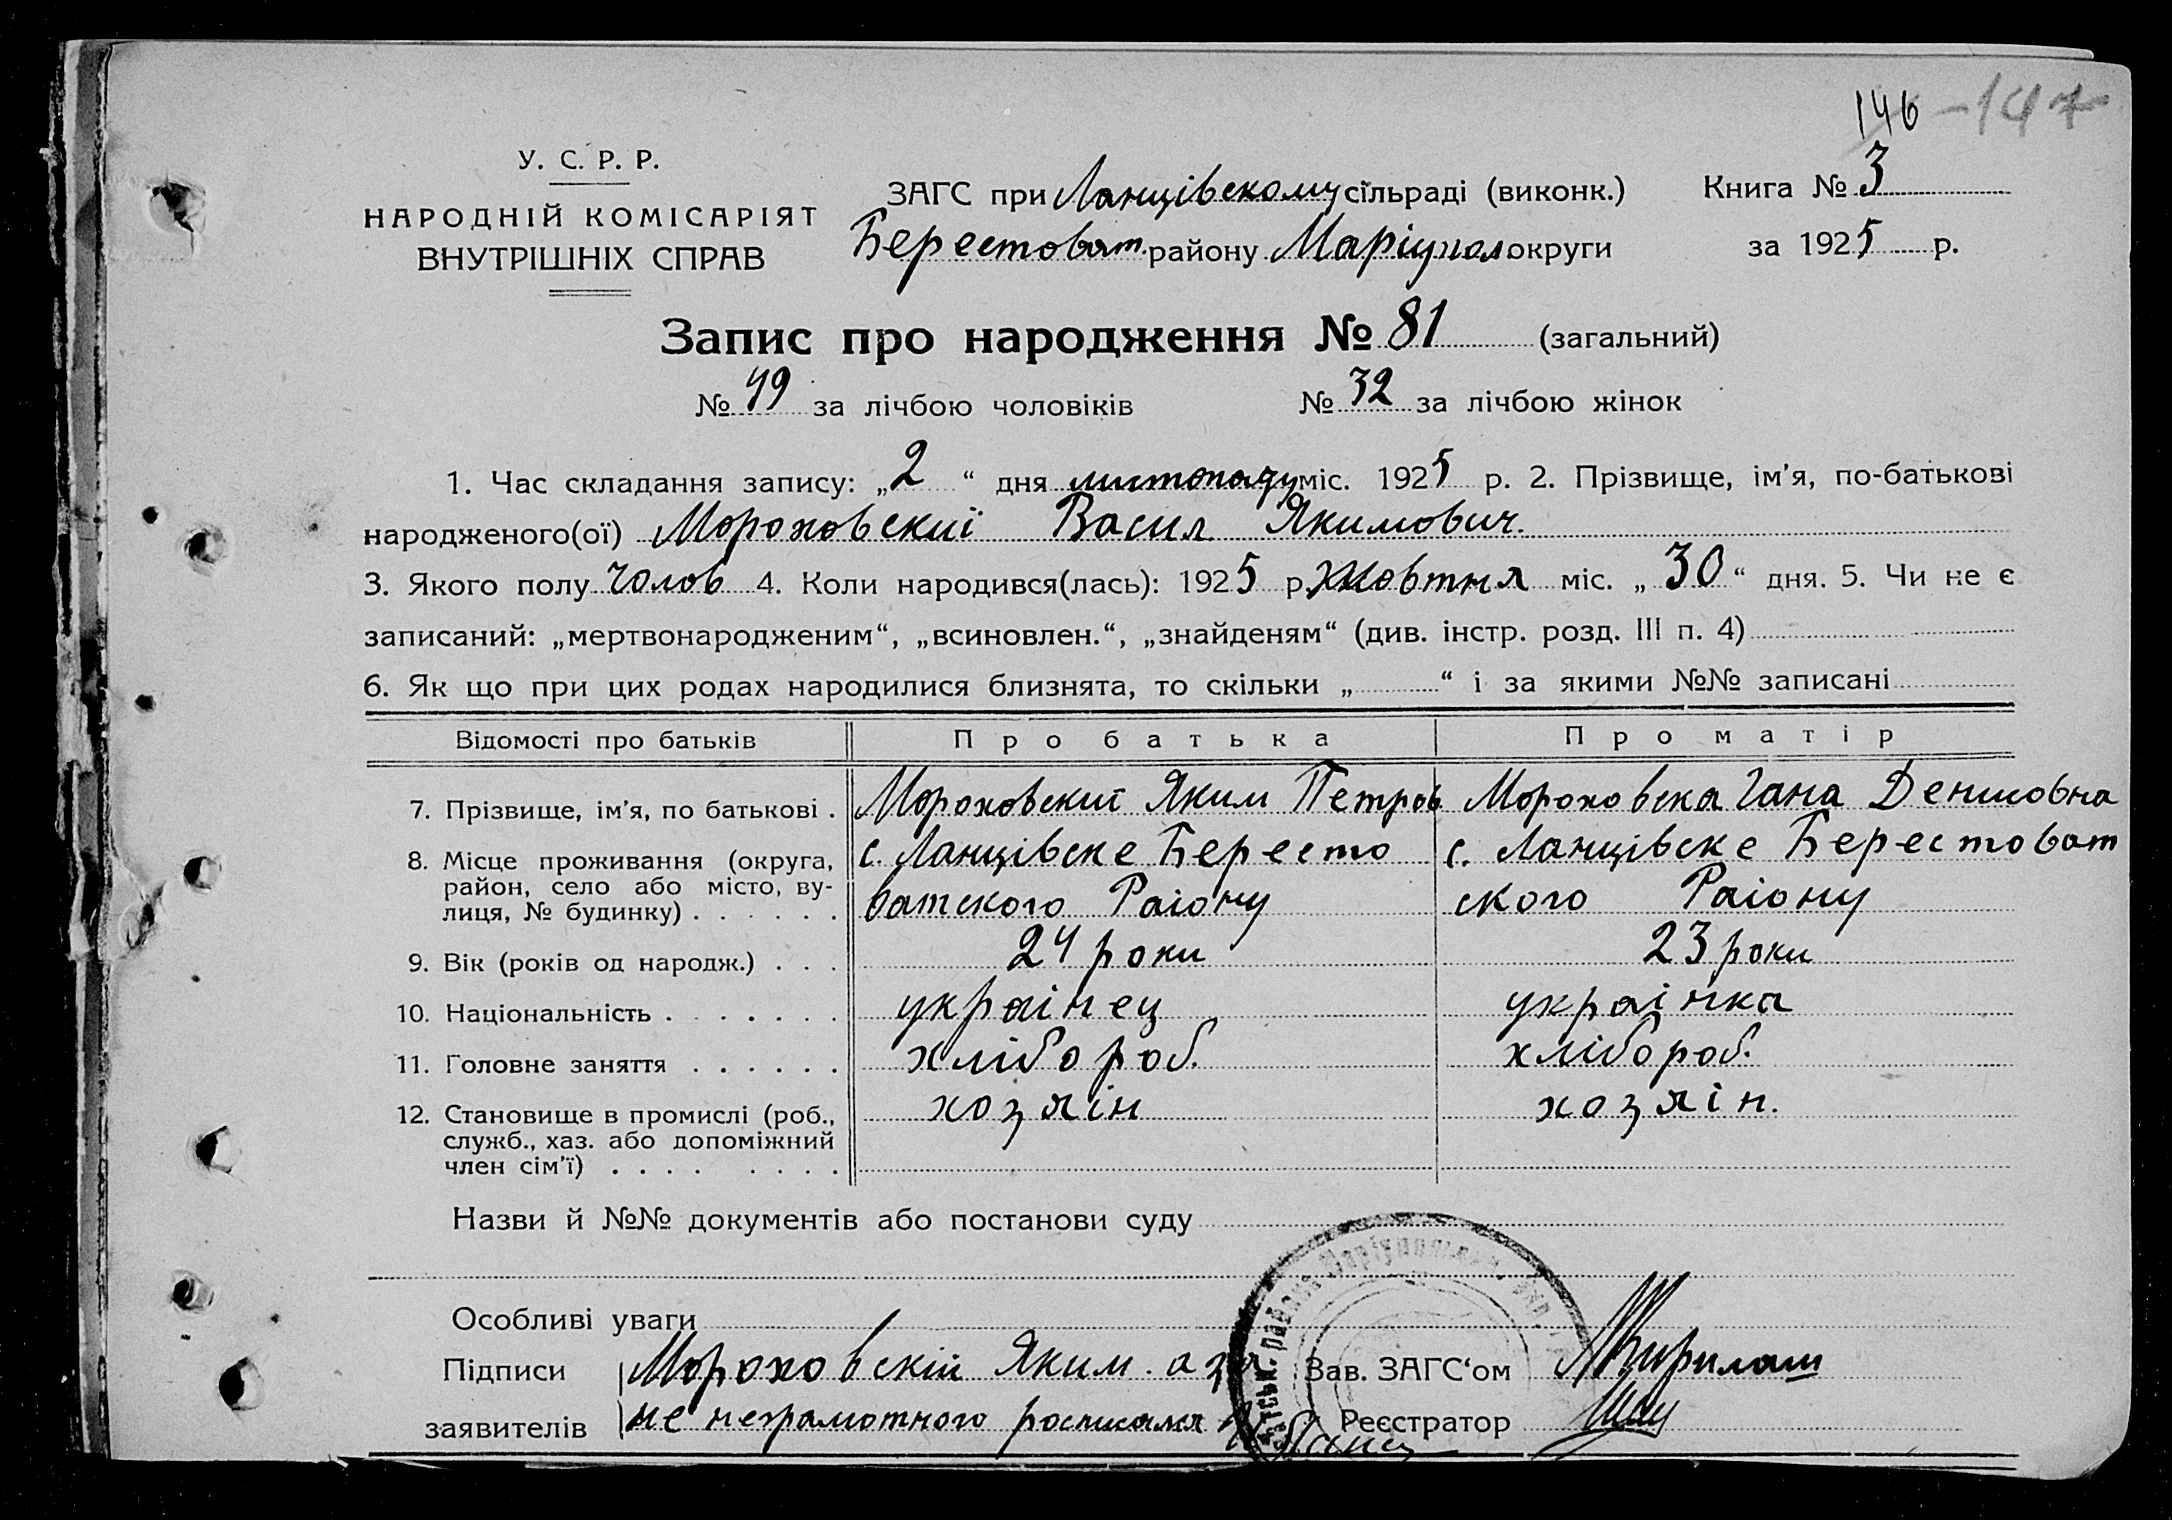 146 -147
У. С. Р. Р.
НАРОДНІЙ КОМІСАРІЯТ
ВНУТРІШНІХ СПРАВ
ЗАГС при Ланцівскому сільраді (виконк.) Книга № 3
Берестоват. району Маріупол округи за 1925 р.
Запис про народження № 81 (загальний)
№ 49 за лічбою чоловіків № 32 за лічбою жінок
1. Час складання запису: „2“ дня листопаду міс. 1925 р. 2. Прізвище, ім'я, по-батькові
народженого(ої) Мороховский Васил Якимович.
3. Якого полу чолов 4. Коли народився(лась): 1925 р. жовтня міс. „30“ дня. 5. Чи не є
записаний: „мертвонародженим“, „всиновлен.“, „знайденям“ (див. інстр. розд. III п. 4)
6. Як що при цих родах народилися близнята, то скільки „ “ і за якими №№ записані
Відомості про батьків Про батька Про матір
7. Прізвище, ім'я, по батькові . Мороховский Яким Петров Мороховска Гана Денисовна
8. Місце проживання (округа, район, село або місто, вулиця, № будинку) . . . . . . с. Ланцівске Берестоватского Раіону с. Ланцівске Берестоватского Раіону
9. Вік (років од народж.) . . . 24 роки 23 роки
10. Національність . . . . . . . украінец украінка
11. Головне заняття . . . . . . хлібороб. хлібороб.
12. Становище в промислі (роб., служб., хаз. або допоміжний член сім'ї) . . . . . . . . хозяін хозяін.
Назви й №№ документів або постанови суду
Особливі уваги
Підписи Мороховскій Яким. а за Зав. ЗАГС'ом
заявителів не неграмотного росписался Реєстратор